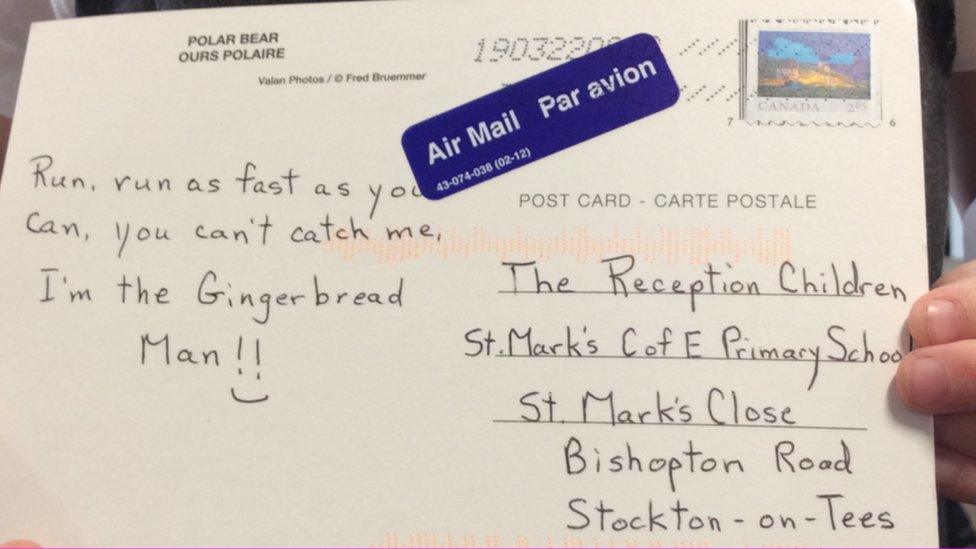 POLAR BEAR
OURS POLAIRE
Valan Photos / © Fred Bruemmer
Air Mail Par avion
43-074-038 (02-12)
CANADA
7
6
Run, run as fast as you
Can, you can't catch me,
I'm the Gingerbread
Man!!
POST CARD - CARTE POSTALE
The Reception Children
St. Mark's C of E Primary School
St. Mark's Close
Bishopton Road
Stockton-on-Tees